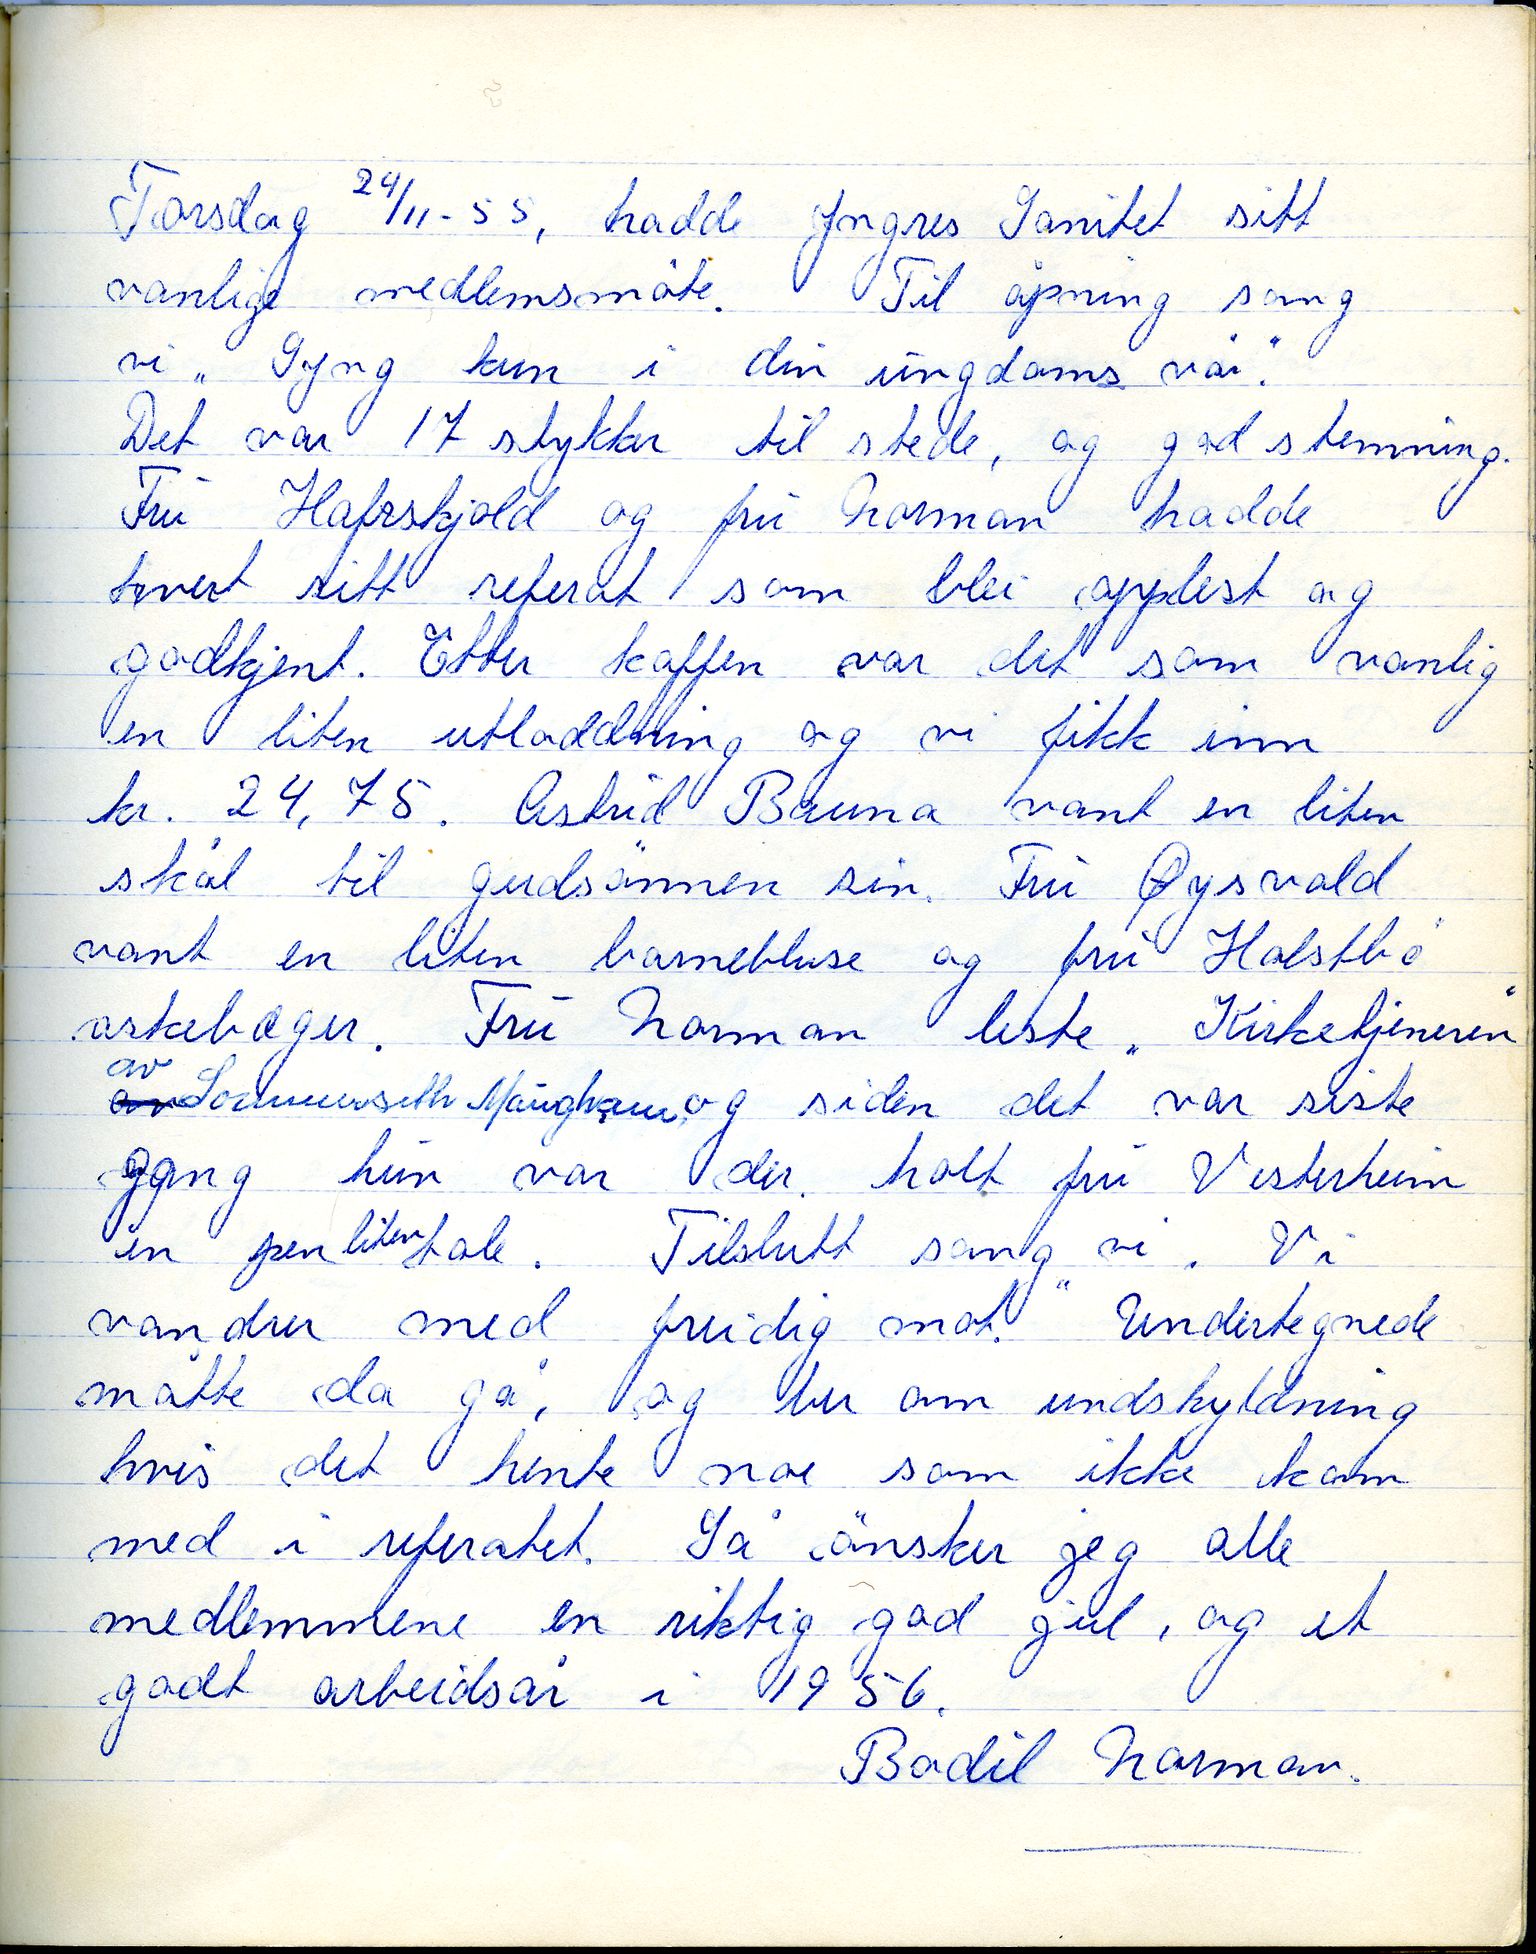 Torsdag 24/11-55, hadde Yngres Sanitet sitt
vanlige medlemsmöte. Til åpning sang
vi „Syng kun i din ungdoms vår."
Det var 17 stykker til stede, og god stemning.
Fru Hafrskjold og fru Norman hadde
hvert sitt referat som blei opplest og
godkjent. Etter kaffen var det som vanlig
en liten utloddning og vi fikk inn
kr. 24,75. Astrid Bauna vant en liten
skål til gudsönnen sin. Fru Øysvold
vant en liten barnebluse og fru Holstbö
askebæger. Fru Norman leste „Kirketjeneren"
av Sommerseth Maugham, og siden det var siste
gang hun var der. holt fru Vesterheim
en pen liten tale. Tilslutt sang vi „Vi
vandrer med freidig mot." Undertegnede
måtte da gå, og ber om undskyldning
hvis det hente noe som ikke kom
med i referatet. Så önsker jeg alle
medlemmene en riktig god jul, og et
godt arbeidsår i 1956.
Bodil Norman.